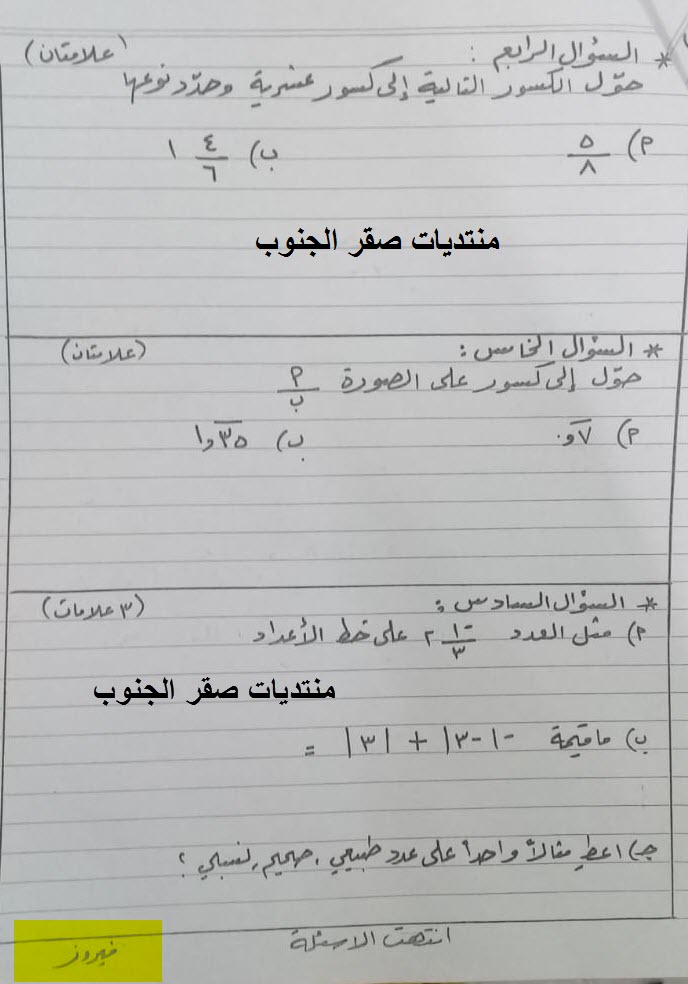 * السؤال الرابع : (علامتان)
حوّل الكسور التالية إلى كسور عشرية وحدّد نوعها
أ) ٥/٨ ب) ٤/٦ ١
منتديات صقر الجنوب
* السؤال الخامس : (علامتان)
حوّل إلى كسور على الصورة أ/ب
أ) ٠و٧̅ ب) ١و٣٥̅
* السؤال السادس : (٣ علامات)
أ) مثل العدد -١/٣ ٢ على خط الأعداد
منتديات صقر الجنوب
ب) ما قيمة -|-٣| + |٣| =
جـ) اعطِ مثالاً واحداً على عدد طبيعي ، صحيح ، نسبي ؟
انتهت الاسئلة
فيروز